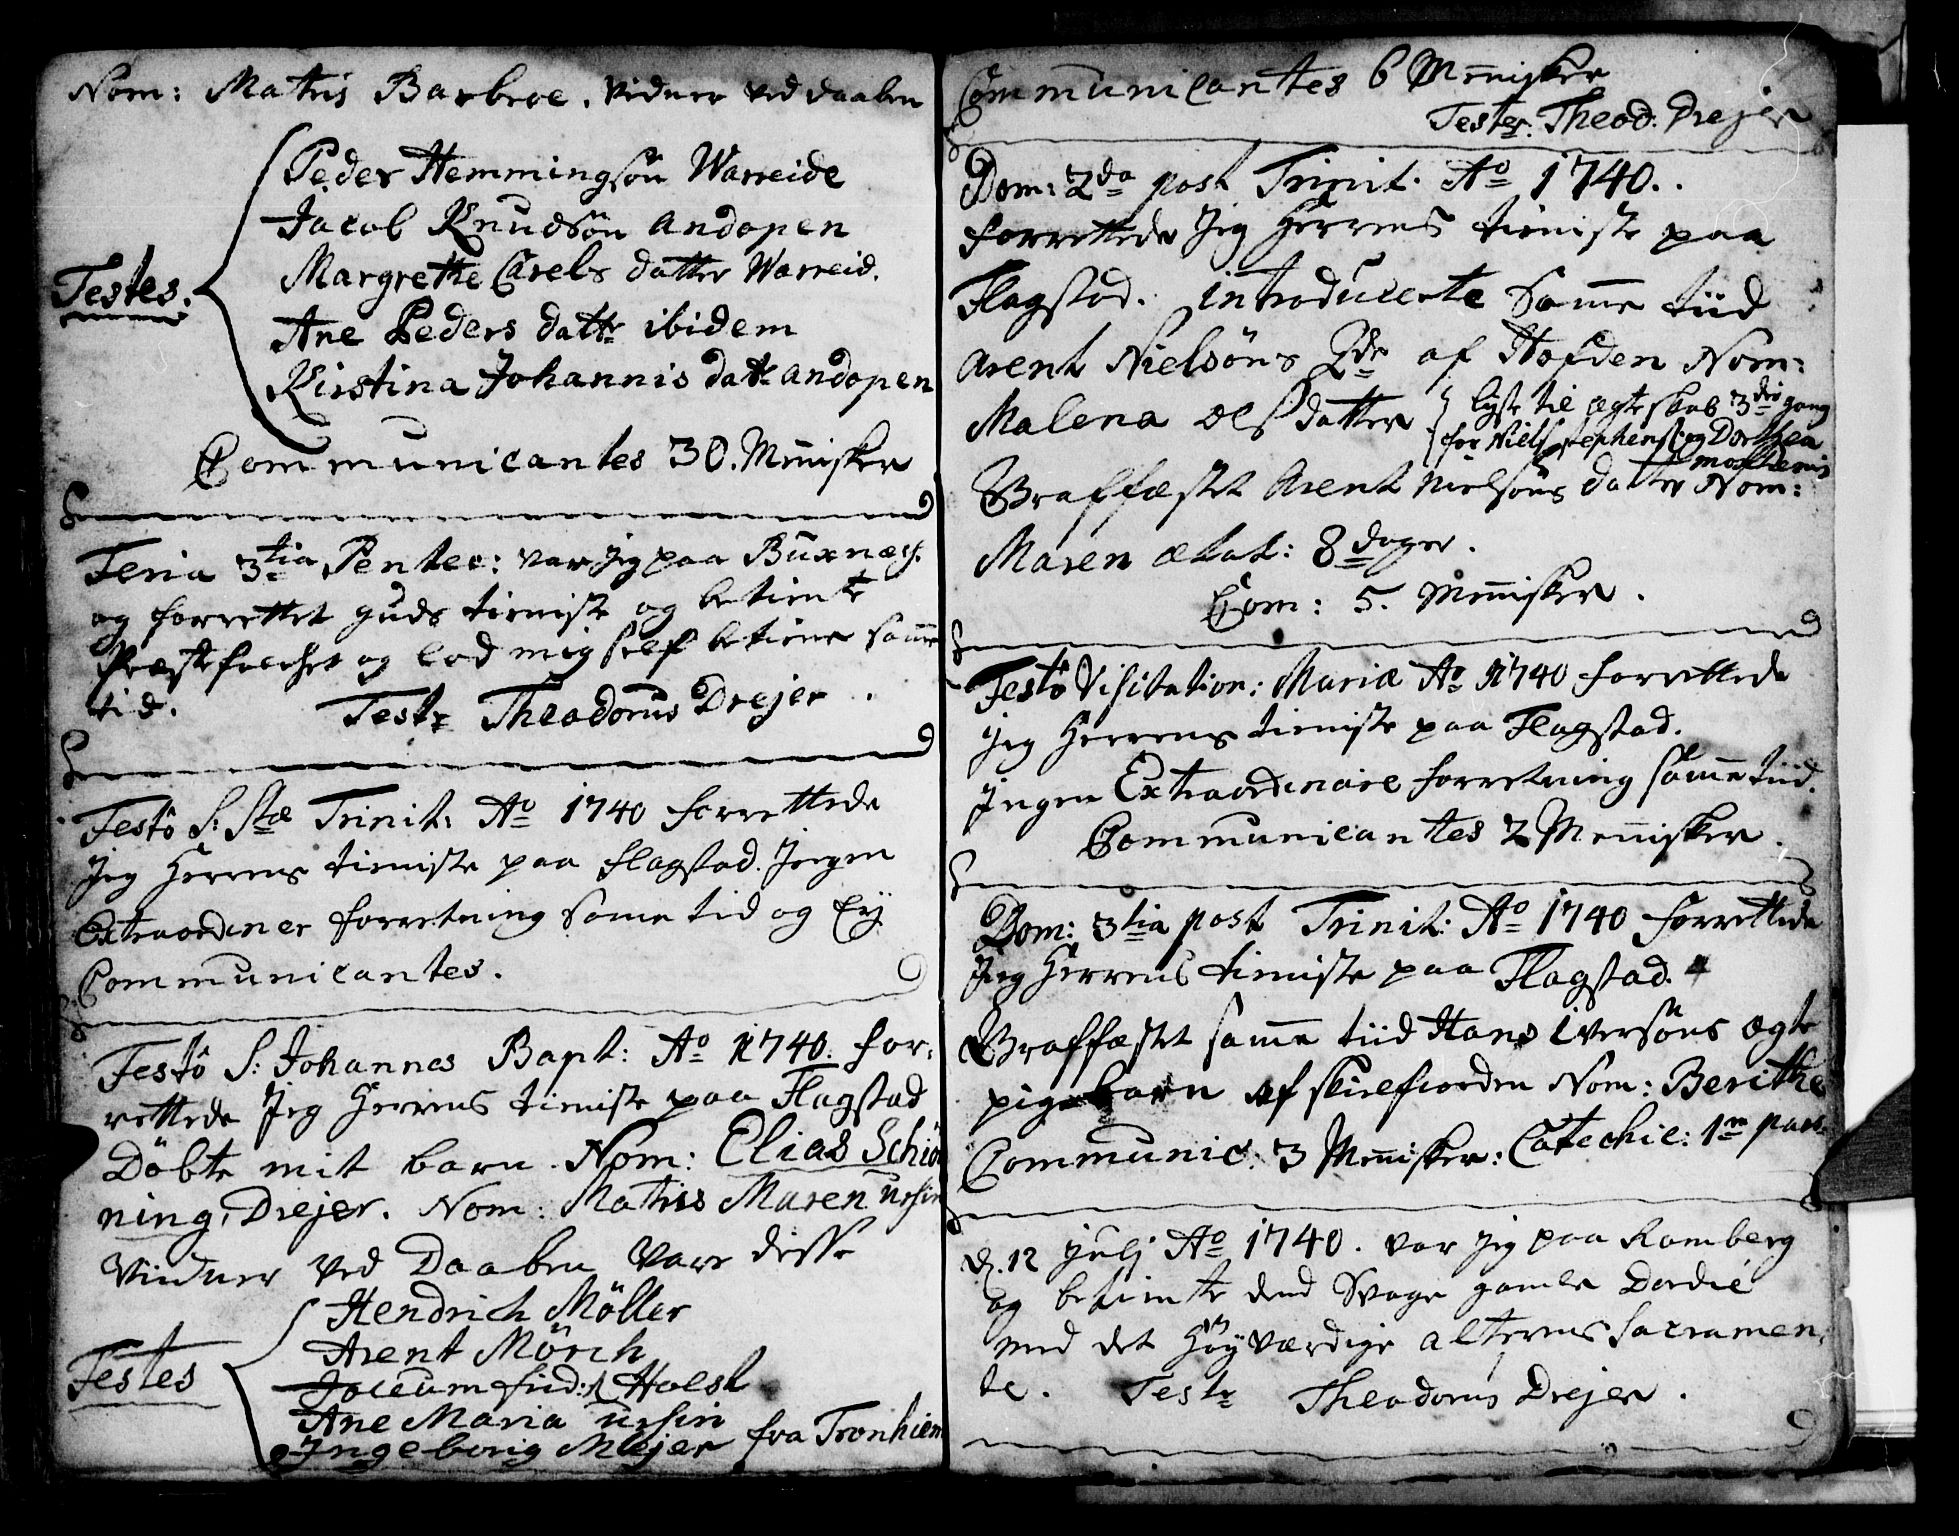 Nom: Matris Barbroe. Vidner ved daaben
Peder Hemmingsön Warreide
Jacob Knudsön Andopen
Testes. Margrethe Carels datter Warreid.
Ane Peders dattr ibidem
Kirstina Johannis dattr andopen
Communicantes 30. Mennisker
Feria 3tia Pentec: var jeg paa Buxnæs
og forrettet guds tieniste og betiente
Præsteskabet og lod mig self betiene samme
tid. Teste Theodorus Drejer.
Festo S: Stæ Trinit: Ao 1740 forrettede
Jeg Herrens tieniste paa Flagstad. Jngen
Extraordiner forretning same tid og Ej
Communicantes.
Festo S: Johannes Bapt: Ao 1740. for-
rettede Jeg Herrens tieniste paa Flagstad
Döbte mit barn. Nom: Elias Schiö
ning, Drejer. Nom: Matris Maren Ursin
Vidner ved Daaben vare disse
Hendrich Möller
Arent Mörch
Testes Holst
Ane Maria Ursin
Jngeborig Mejer fra Tronhiem
Communicantes 6 Mennisker
Teste. Theod. Drejer
Dom: 2da post Trinit. Ao 1740..
forrettede Jeg Herrens tieniste paa
Flagstad. introducerte Same tiid
Arent Nielsöns af Hofden Nom:
Malena Ols datter lyste til ægteskab 3die gang
for Niels Stephens. og Dorthea
Graffæstet Arent Nielsöns datter Nom:
Maren ætat: 8 dager.
Com: 5. Mennisker.
Festo Visitation: Mariæ Ao 1740 forrettede
Jeg Herrens tieniste paa Flagstad.
Jngen Extraordinaire forretning samme tiid.
Communicantes 2 Mennisker.
Dom: 3tia post Trinit: Ao 1740 forrettede
Jeg Herrens tieniste paa Flagstad.
Graffæstet samme tiid Hans iversöns ægte
pigebarn af skielfiorden Nom: Berithe
Communic: 3 Mennisker: Catechic: 1m pars
d. 12 Julj Ao 1740. var jeg paa Ramberg
og betiente dend Svage gamle Dordie
med det Höyværdige alterens Sacramen-
te. Teste Theodorus Drejer.